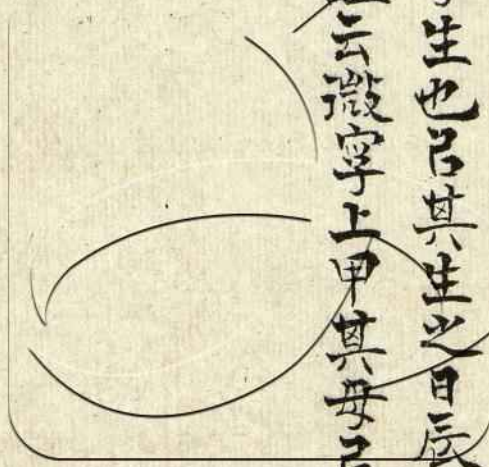 生也㠯其生之日辰
云微字上甲其母㠯